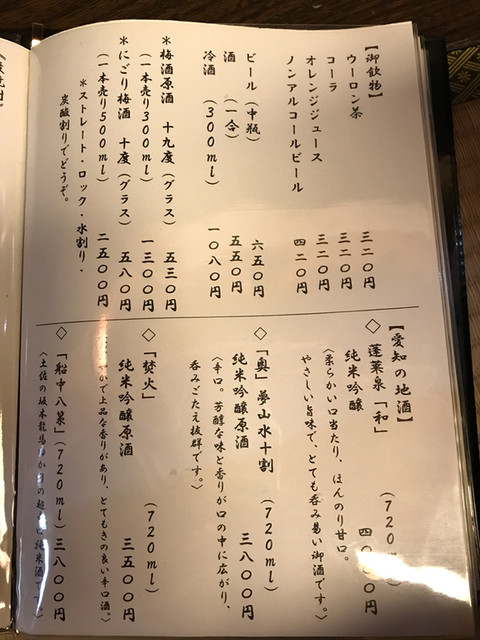 【御飲物】
ウーロン茶 三二〇円
コーラ 三二〇円
オレンジジュース 三二〇円
ノンアルコールビール 四二〇円
ビール (中瓶) 六五〇円
酒 (一合) 五五〇円
冷酒 (300ml) 一〇八〇円
*梅酒原酒 十九度 (グラス) 五三〇円
(一本売り300ml) 一三〇〇円
*にごり梅酒 十度 (グラス) 五八〇円
(一本売り500ml) 二五〇〇円
*ストレート・ロック・水割り・
炭酸割りでどうぞ。
【愛知の地酒】
◇ 蓬莱泉「和」
純米吟醸 (720ml) 四 〇円
〈柔らかい口当たり、ほんのり甘口。
やさしい旨味で、とても呑み易い御酒です。〉
◇ 「奥」夢山水十割
純米吟醸原酒 (720ml) 三八〇〇円
〈辛口。芳醇な味と香りが口の中に広がり、
呑みごたえ抜群です。〉
◇ 「焚火」
純米吟醸原酒 (720ml) 三五〇〇円
やかで上品な香りがあり、とてもきの良い辛口酒。〉
◇ 「船中八泉」(720ml) 三八〇〇円
〈土佐の坂本龍馬 かりの 純米酒です。〉